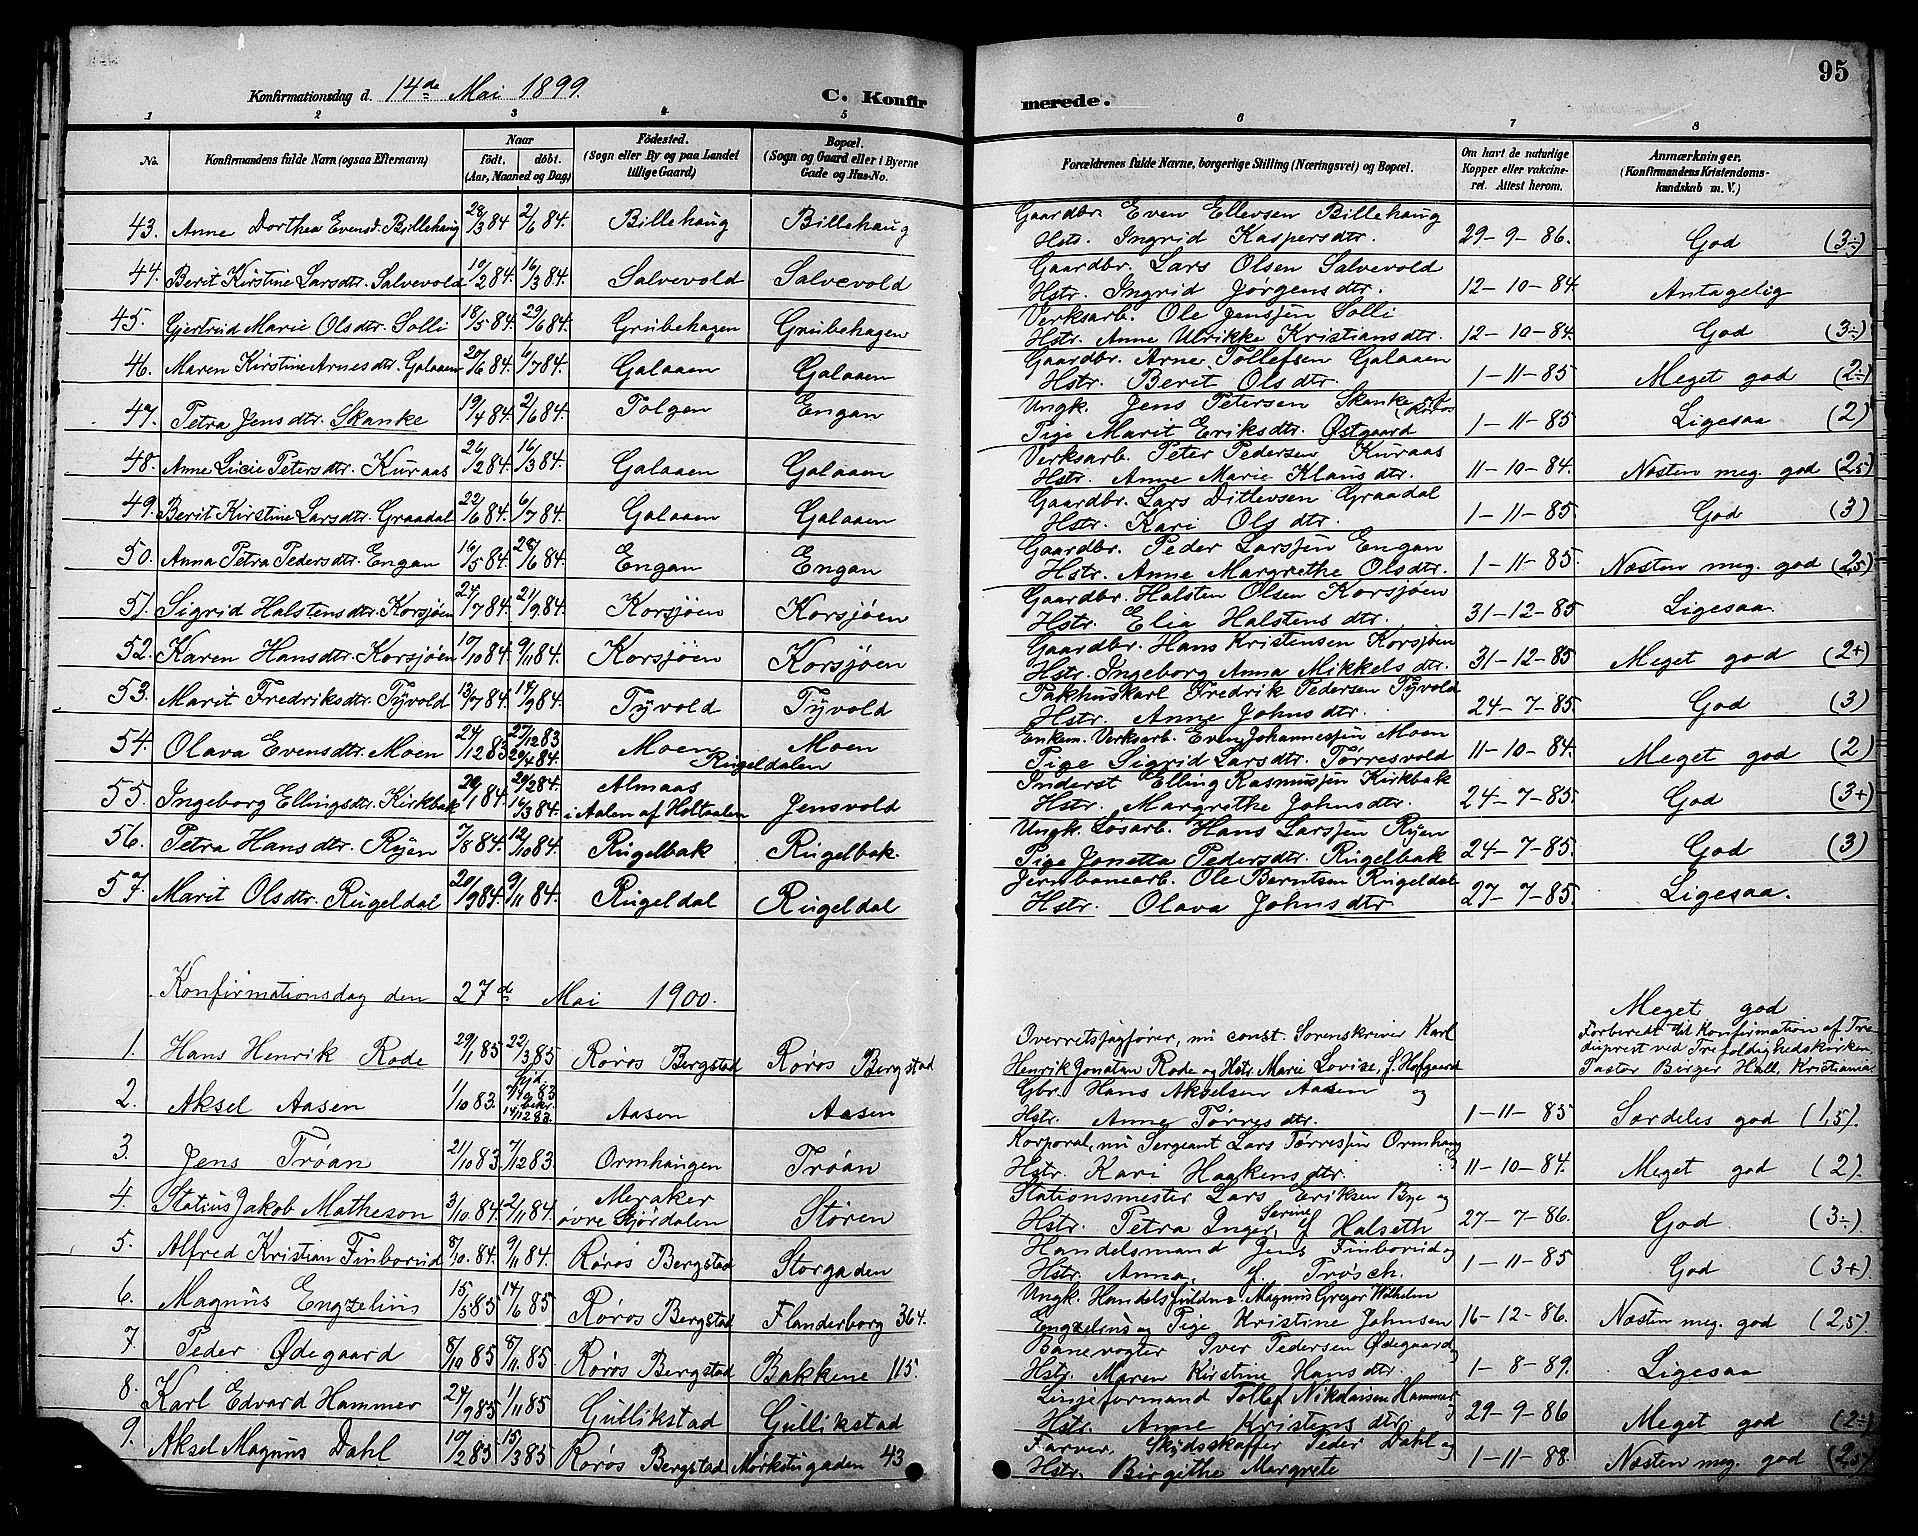 95
Konfirmationsdag d. 14de Mai 1899.
C. Konfirmerede.
1 2 3 4 5 6 7 8
No. Konfirmandens fulde Navn (ogsaa Efternavn) Naar født, døbt. (Aar, Maaned og Dag) Fødested. (Sogn eller By og paa Landet tillige Gaard) Bopæl. (Sogn og Gaard eller i Byerne Gade og Hus-No. Forældrenes fulde Navne, borgerlige Stilling (Næringsvei) og Bopæl. Om havt de naturlige Kopper eller vakcineret. Attest herom. Anmærkninger. (Konfirmandens Kristendomskundskab m. V.)
43. Anne Dorthea Evensd. Billehaug 29/3 84 2/6 84. Billehaug Billehaug Gaardbr. Even Ellevsen Billehaug
Hstr. Ingrid Kaspersdtr. 29-9-86. God (3÷)
44. Berit Kirstine Larsdtr. Salvevold 10/2 84. 16/3 84. Salvevold Salvevold Gaardbr. Lars Olsen Salvevold
Hstr. Ingrid Jørgensdtr. 12-10-84 Antagelig
45. Gjertrud Marie Olsdtr. Solli 18/5 84. 29/6 84. Grubehagen Grubehagen Verksarb. Ole Jenssen Solli
Hstr. Anne Ulrikke Kristiansdtr. 12-10-84. God (3÷)
46. Maren Kirstine Arnesdtr. Galaaen 20/6 84. 6/7 84. Galaaen Galaaen Gaardbr. Arne Tollefsen Galaaen
Hstr. Berit Olsdtr. 1-11-85 Meget god (2÷)
47. Petra Jensdtr. Skanke 19/4 84. 2/6 84. Tolgen Engan Ungk. Jens Petersen Skanke
Pige Marit Eriksdtr. Østgaard 1-11-85 Ligesaa (2)
48. Anne Lucie Petersdtr. Kuraas 26/2 84. 16/3 84. Galaaen Galaaen Verksarb. Peter Pedersen Kuraas
Hstr. Anne Marie Klausdtr. 11-10-84. Næsten meg. god (2,5)
49. Berit Kirstine Larsdtr. Graadal 22/6 84. 6/7 84. Galaaen Galaaen Gaardbr. Lars Ditlevsen Graadal
Hstr. Kari Olsdtr. 1-11-85. God (3)
50. Anna Petra Pedersdtr. Engan 16/5 84. 28/6 84. Engan Engan Gaardbr. Peder Larssen Engan
Hstr. Anne Margrethe Olsdtr. 1-11-85. Næsten meg. god (2,5)
51. Sigrid Halstensdtr. Korsjøen 27/7 84. 21/9 84. Korsjöen Korsjøen Gaardbr. Halsten Olsen Korsjøen
Hstr. Elia Halstensdtr. 31-12-85 Ligesaa
52. Karen Hansdtr. Korsjøen 10/10 84. 9/11 84. Korsjöen Korsjøen Gaardbr. Hans Kristensen Korsjøen
Hstr. Ingeborg Anna Mikkelsdtr. 31-12-85 Meget god (2+)
53. Marit Fredriksdtr. Tyvold 13/7 84. 14/9 84. Tyvold Tyvold Pakhuskarl Fredrik Pedersen Tyvold
Hstr. Anne Johnsdtr. 24-7-85. God (3)
54. Olava Evensdtr. Moen 24/12 83 27/12 83 29/4 84. Moen Moen Rugeldalen Enkem. Verksarb. Even Johannessen Moen
Pige Sigrid Larsdtr. Tørresvold 11-10-84. Meget god (2)
55. Ingeborg Ellingsdtr. Kirkbak 29/1 84. 20/2 84. 16/3 84. Almaas i Aalen af Holtaalen Jensvold Inderst Elling Rasmussen Kirkbak
Hstr. Margrethe Johnsdtr. 24-7-85. God (3+)
56. Petra Hansdtr. Ryen 7/8 84. 12/10 84. Rugelbak Rugelbak. Ungk. Løsarb. Hans Larssen Ryen
Pige Jonetta Pedersdtr. Rugelbak 24-7-85. God (3)
57. Marit Olsdtr. Rugeldal 20/9 84. 9/11 84. Rugeldal Rugeldal Jernbanearb. Ole Berntsen Rugeldal
Hstr. Olava Johnsdtr 27-7-85. Ligesaa.
Konfirmationsdag den 27de Mai 1900.
1. Hans Henrik Rode 29/1 85 22/3 85 Røros Bergstad Røros Bergstad Overretssagfører, nu const. Sorenskriver Karl
Henrik Jonatan Rode og Hstr. Marie Lovise, f. Hofgaard Meget god
Forberedt til Konfirmation af Tredieprest ved Trefoldighedskirken,
Pastor Birger Hall, Kristiania
2. Aksel Aasen 1/10 83. hjd. bekr. 14/12 83. Aasen Aasen Gbr. Hans Akselsen Aasen og
Hstr. Anne Tørresdtr. 1-11-85 Særdeles god (1,5).
3. Jens Trøan 21/10 83. 7/12 83. Ormhaugen Trøan Korporal, nu Sergeant Lars Tørressen Ormhaug
Hstr. Kari Haakensdtr 11-10-84. Meget god (2).
4. Statius Jakob Matheson 3/10 84. 2/11 84. Meraker øvre Stjørdalen Støren Stationsmester Lars Eriksen Bye og
Hstr. Petra Inger Serine f. Halseth 27-7-86. God. (3÷)
5. Alfred Kristian Finborud 8/10 84. 9/11 84. Røros Bergstad Storgaden Handelsmand Jens Finborud og
Hstr. Anna, f. Trøsch. 1-11-85 God (3+)
6. Magnus Engzelius 15/5 85 14/6 85 Røros Bergstad Flanderborg 364. Ungk. Handelsfuldm. Magnus Gregor Wilhelm
Engzelius og Pige Kristine Johnsen 16-12-86. Næsten meg. god (2,5).
7. Peder Ødegaard 8/10 85 8/11 85 Røros Bergstad Bakkene 115. Banevogter Iver Pedersen Ødegaard og
Hstr. Maren Kirstine Hansdtr. 1-8-89. Ligesaa
8. Karl Edvard Hammer 24/9 85 1/11 85 Gullikstad Gullikstad Linjeformand Tollef Nikolaisen Hammer
Hstr. Anne Kristensdtr 29-9-86 Meget god (2÷)
9. Aksel Magnus Dahl 10/2 85 15/3 85 Røros Bergstad Mørkstugaden 43 Farver, Skydsskaffer Peder Dahl og
Hstr. Birgithe Margrete 1-11-88. Næsten meg. god (2,5)